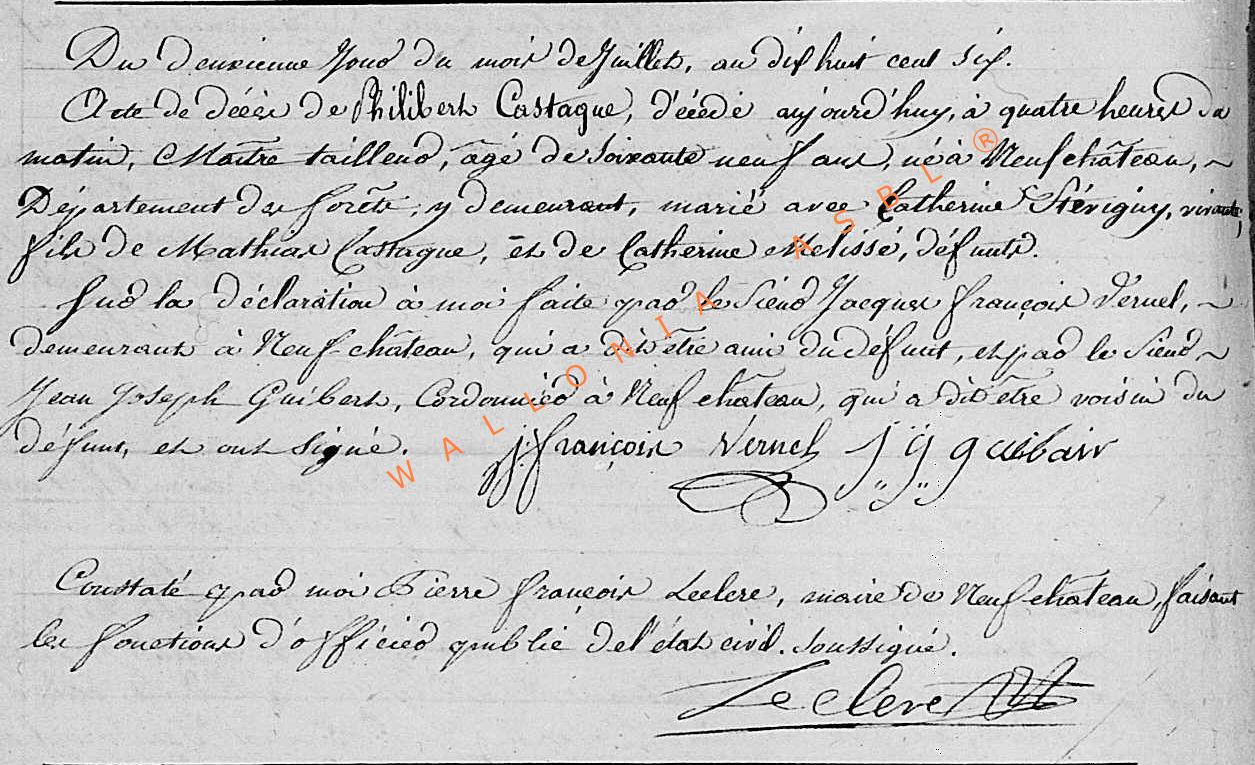 Du deuxieme Jour du mois de Juillet, an dix huit cent six.
Acte de décès de Philibert Castagne, décédé aujourd'huy, à quatre heures du
matin, Maître tailleur, âgé de Soixante neuf ans, né à Neufchâteau, ~
Département des forêts, y demeurant, marié avec Catherine Stévigny, vivante,
fils de Mathias Castagne, et de Catherine Melissé, défunts.
Sur la déclaration à moi faite par le Sieur Jacques françois Vernel, ~
demeurant à Neufchâteau, qui a dit être ami du défunt, et par le Sieur ~
Jean Joseph Guibert, Cordonnier à Neufchâteau, qui a dit être voisin du
défunt, et ont Signé. J. françois Vernel J J guibair
Constaté par moi Pierre françois Leclerc, maire de Neufchâteau, faisant
les fonctions d'officier public de l'état civil. Soussigné.
Leclerc
WALLONIA ASBL ®